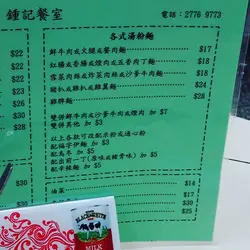 鍾記餐室
電話：2776 9773
各式湯粉麵
鮮牛肉或火腿或餐肉麵 $17
紅腸或香腸或煙肉或五香肉丁麵 $18
雪菜肉絲或炸菜肉絲或沙爹牛肉麵 $18
豬扒或雞扒或雞翼麵 $24
雞髀麵 $28
雙拼鮮牛肉或沙爹牛肉或煙肉 加 $7
雙拼其他 加 $3
以上各款可改配米粉或通心粉
配福字伊麵 加 $3
配烏冬 加 $5
配出前一丁(原味或豬骨味) 加 $5
配辛辣麵 加 $5
$22
$22
$22
$23
$23
$28
油菜 $15
$30
$30
$25
BLACK&WHITE
MILK